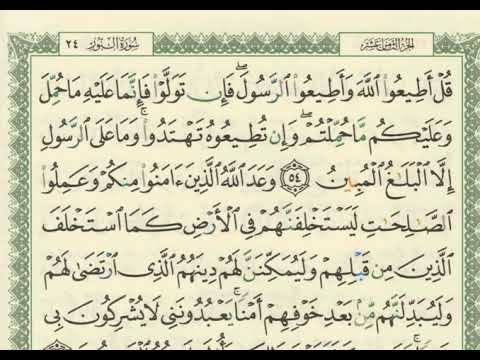 الجزء الثامن عشر
سورة النور ٢٤
قُلْ أَطِيعُوا۟ ٱللَّهَ وَأَطِيعُوا۟ ٱلرَّسُولَ ۖ فَإِن تَوَلَّوْا۟ فَإِنَّمَا عَلَيْهِ مَا حُمِّلَ
وَعَلَيْكُم مَّا حُمِّلْتُمْ ۖ وَإِن تُطِيعُوهُ تَهْتَدُوا۟ ۚ وَمَا عَلَى ٱلرَّسُولِ
إِلَّا ٱلْبَلَٰغُ ٱلْمُبِينُ ٥٤ وَعَدَ ٱللَّهُ ٱلَّذِينَ ءَامَنُوا۟ مِنكُمْ وَعَمِلُوا۟
ٱلصَّٰلِحَٰتِ لَيَسْتَخْلِفَنَّهُمْ فِى ٱلْأَرْضِ كَمَا ٱسْتَخْلَفَ
ٱلَّذِينَ مِن قَبْلِهِمْ وَلَيُمَكِّنَنَّ لَهُمْ دِينَهُمُ ٱلَّذِى ٱرْتَضَىٰ لَهُمْ
وَلَيُبَدِّلَنَّهُم مِّنۢ بَعْدِ خَوْفِهِمْ أَمْنًا ۚ يَعْبُدُونَنِى لَا يُشْرِكُونَ بِى